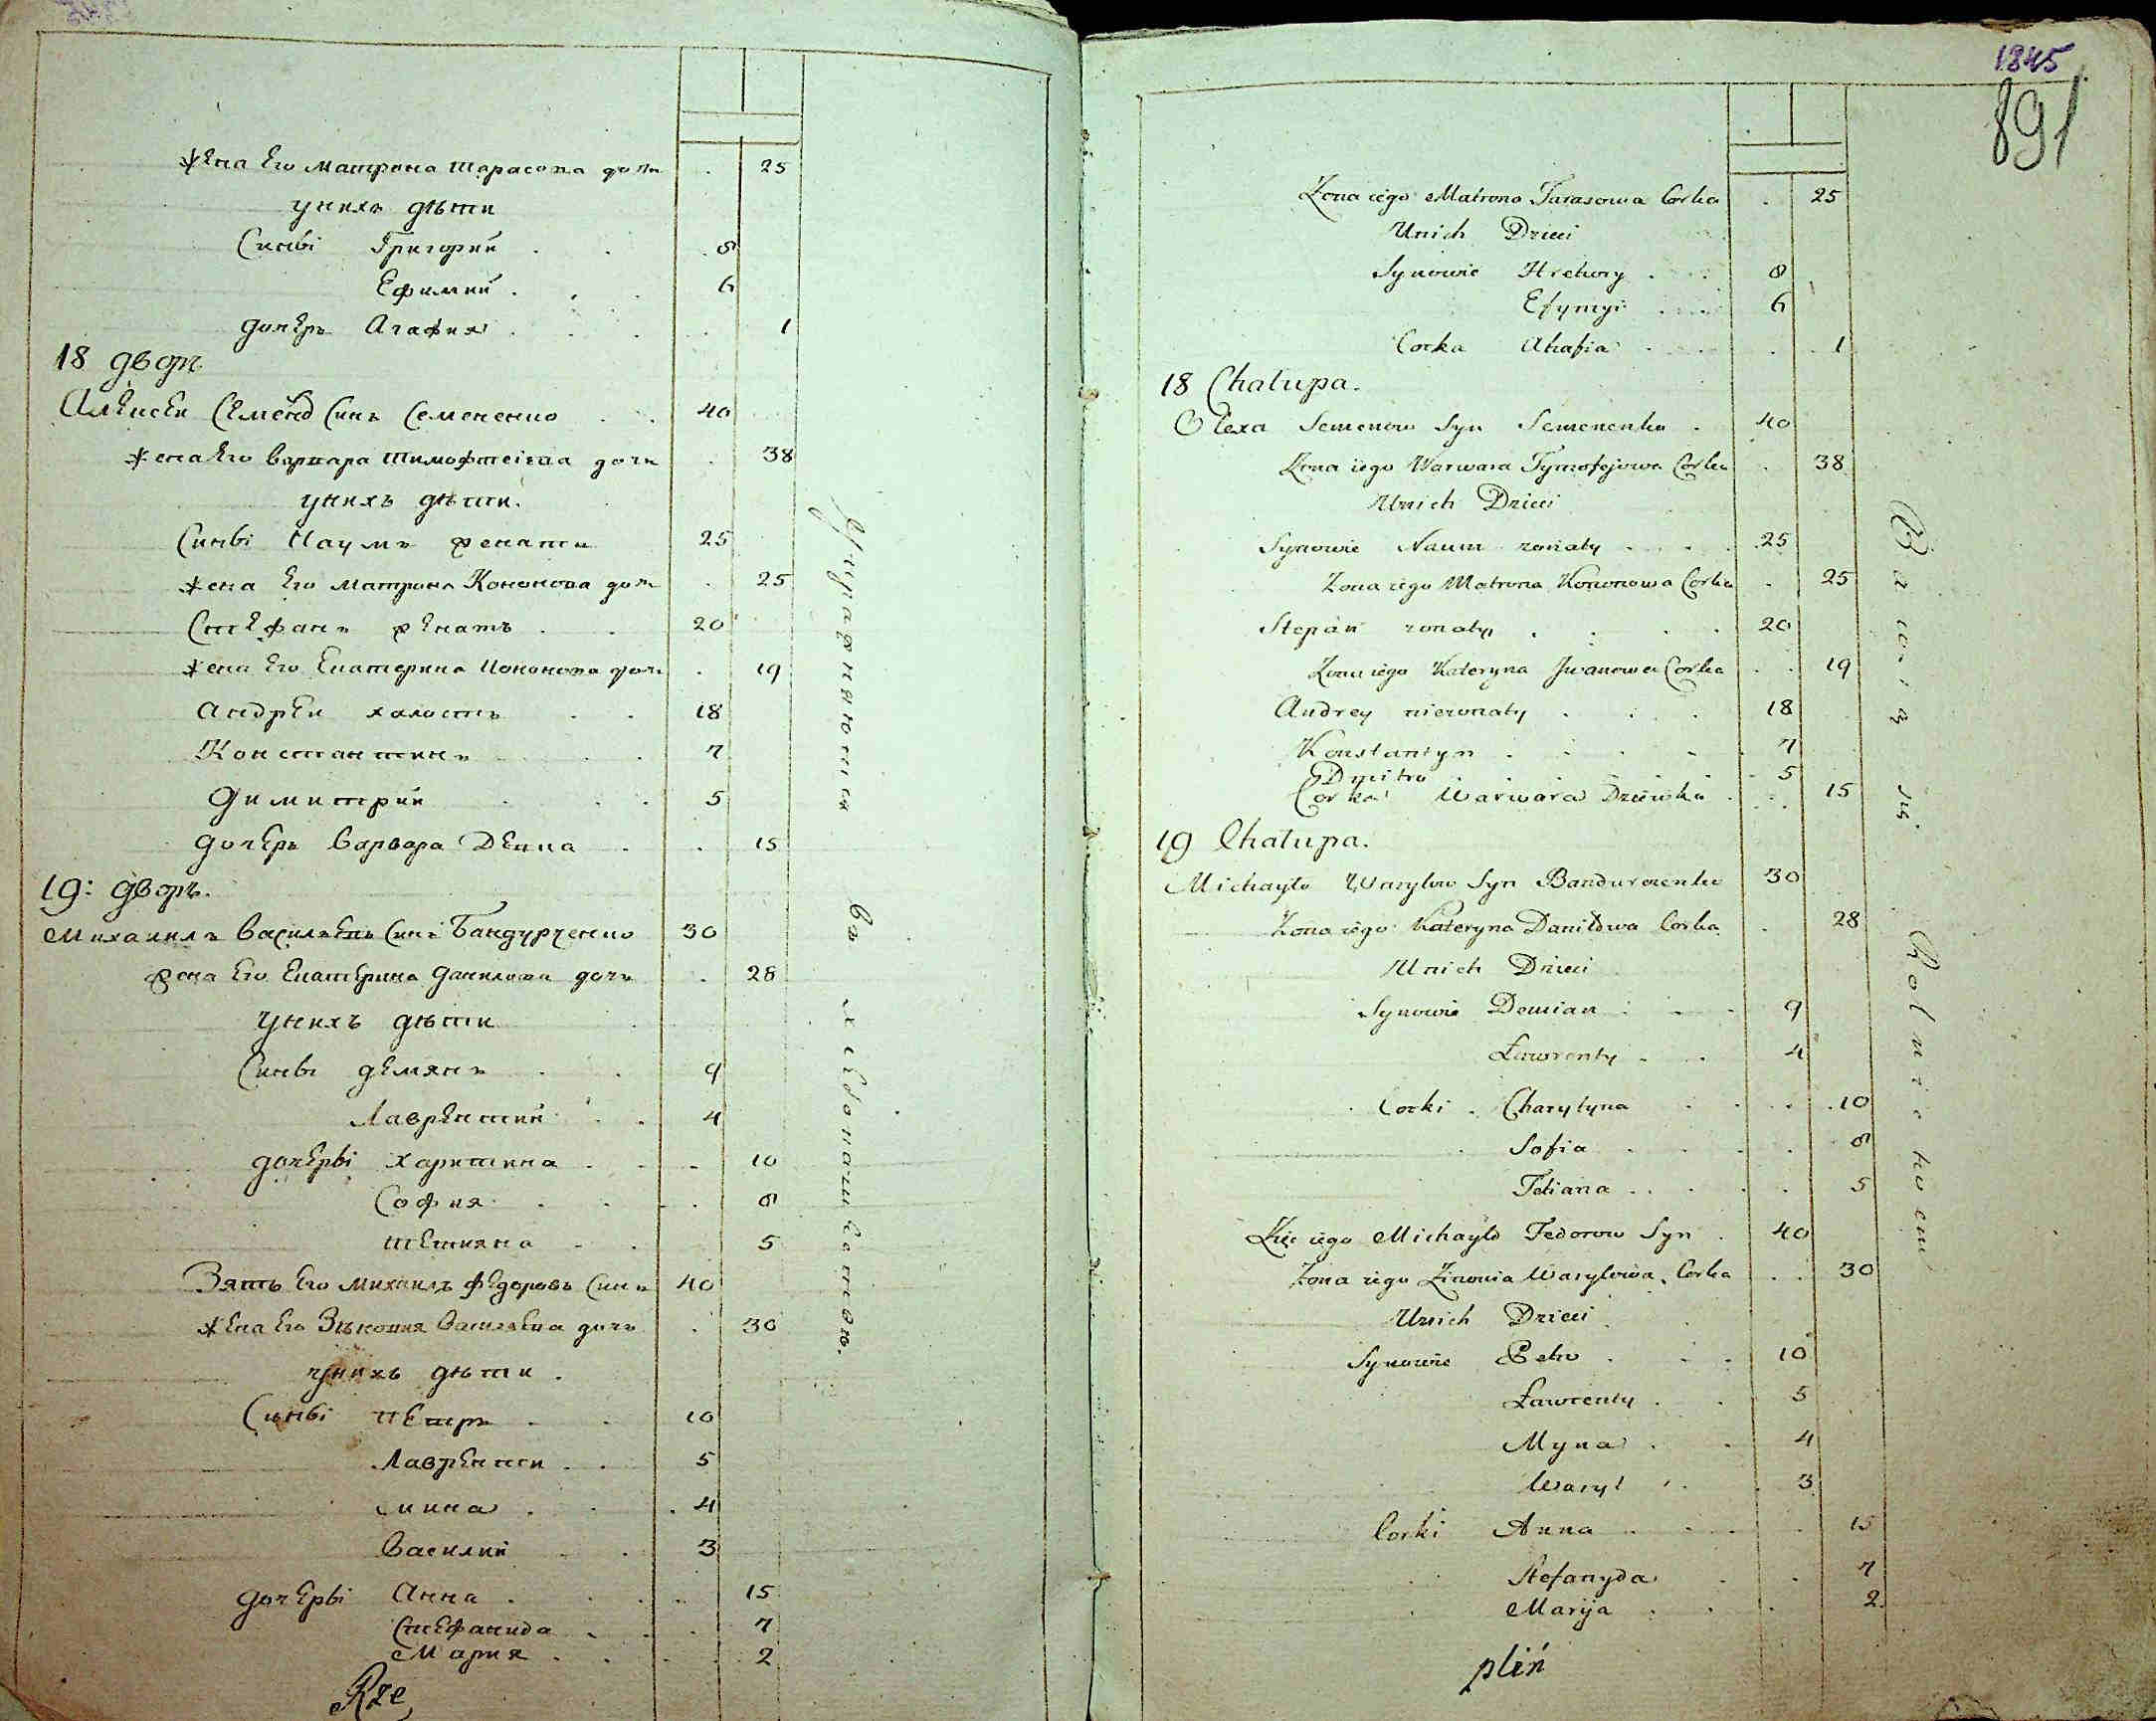 жена Его матрона тарасова дочь . 25
унихъ дѣти
Синві Григорий . . 8
Ефимий . . . 6
дочерь Агафия . . . 1
18 дворъ
Алексеи Семенов Синъ Семененко . . 40
жена Его варвара тимофтеіева дочь . 38
унихъ дѣти.
Синві Наумъ женати 25
жена Его матрона Кононова дочь . 25
Стефанъ женатъ . . 20
жена Его Екатерина дочь . 19
андреи холостъ . . 18
Константинъ . . 7
Димитрий . . . 5
дочерь варвара Девка . . 15
19: дворъ.
михаилъ василевъ Синъ Бандурченко 30
жена Его Екатерина данилова дочь . 28
унихъ дѣти
Синві демянъ . . 9
Лаврентий . . 4
дочерві харитина . . . 10
София . . . . 8
тетияна . . 5
Зять Его михаилъ федоровъ Синъ 40
жена Его Зѣновия василева дочь . 30
унихъ дѣти .
Синві петръ . . 10
Лавренти . . 5
мина . . . 4
василий . . 3
дочерві анна . . . . 15
Стефанида . . . 7
Мария . . . . 2
Rze
Упражняютъся въ хлебопашествою.
1845
891
Żona iego Matrona Tarasowa Corka . 25
Unich Dzieci
Synowie Hrehory . . . 8
Efymyi . . . . 6
Corka Ahafia . . . . 1
18 Chałupa.
Olexa Semenow Syn Semenenko . 40
Żona iego Warwara Tymofejowa Corka . 38
Unich Dzieci
Synowie Naum zonaty . . . . 25
Zona iego Matrona Kononowa Corka . 25
Stepan zonaty . . . . 20
Zona iego Kateryna Jwanowa Corka . . 19
Andrey niezonaty . . . 18
Konstantyn . . . . . 7
Dmitro . 5
Corka Warwara Dziewka . . . 15
19 Chałupa.
Michayło Wasylow Syn Bandurczenko 30
Zona iego Kateryna Daniłowa Corka . 28
Unich Dzieci
Synowie Demian . . . 9
Ławrenty . . 4
Corki . Charytyna . . . . 10
Sofia . . . . 8
Tetiana . . . . . 5
Zięc iego Michayło Fedorow Syn . 40
Zona iego Zinowia Wasylowa Corka . . 30
Unich Dzieci
Synowie Petro . . . 10
Ławrenty . . 5
Myna . . 4
Wasyl . . . 3
Corki Anna . . . . 15
Stefanyda . . 7
Marija . . . 2
pleń
Rolnictwem